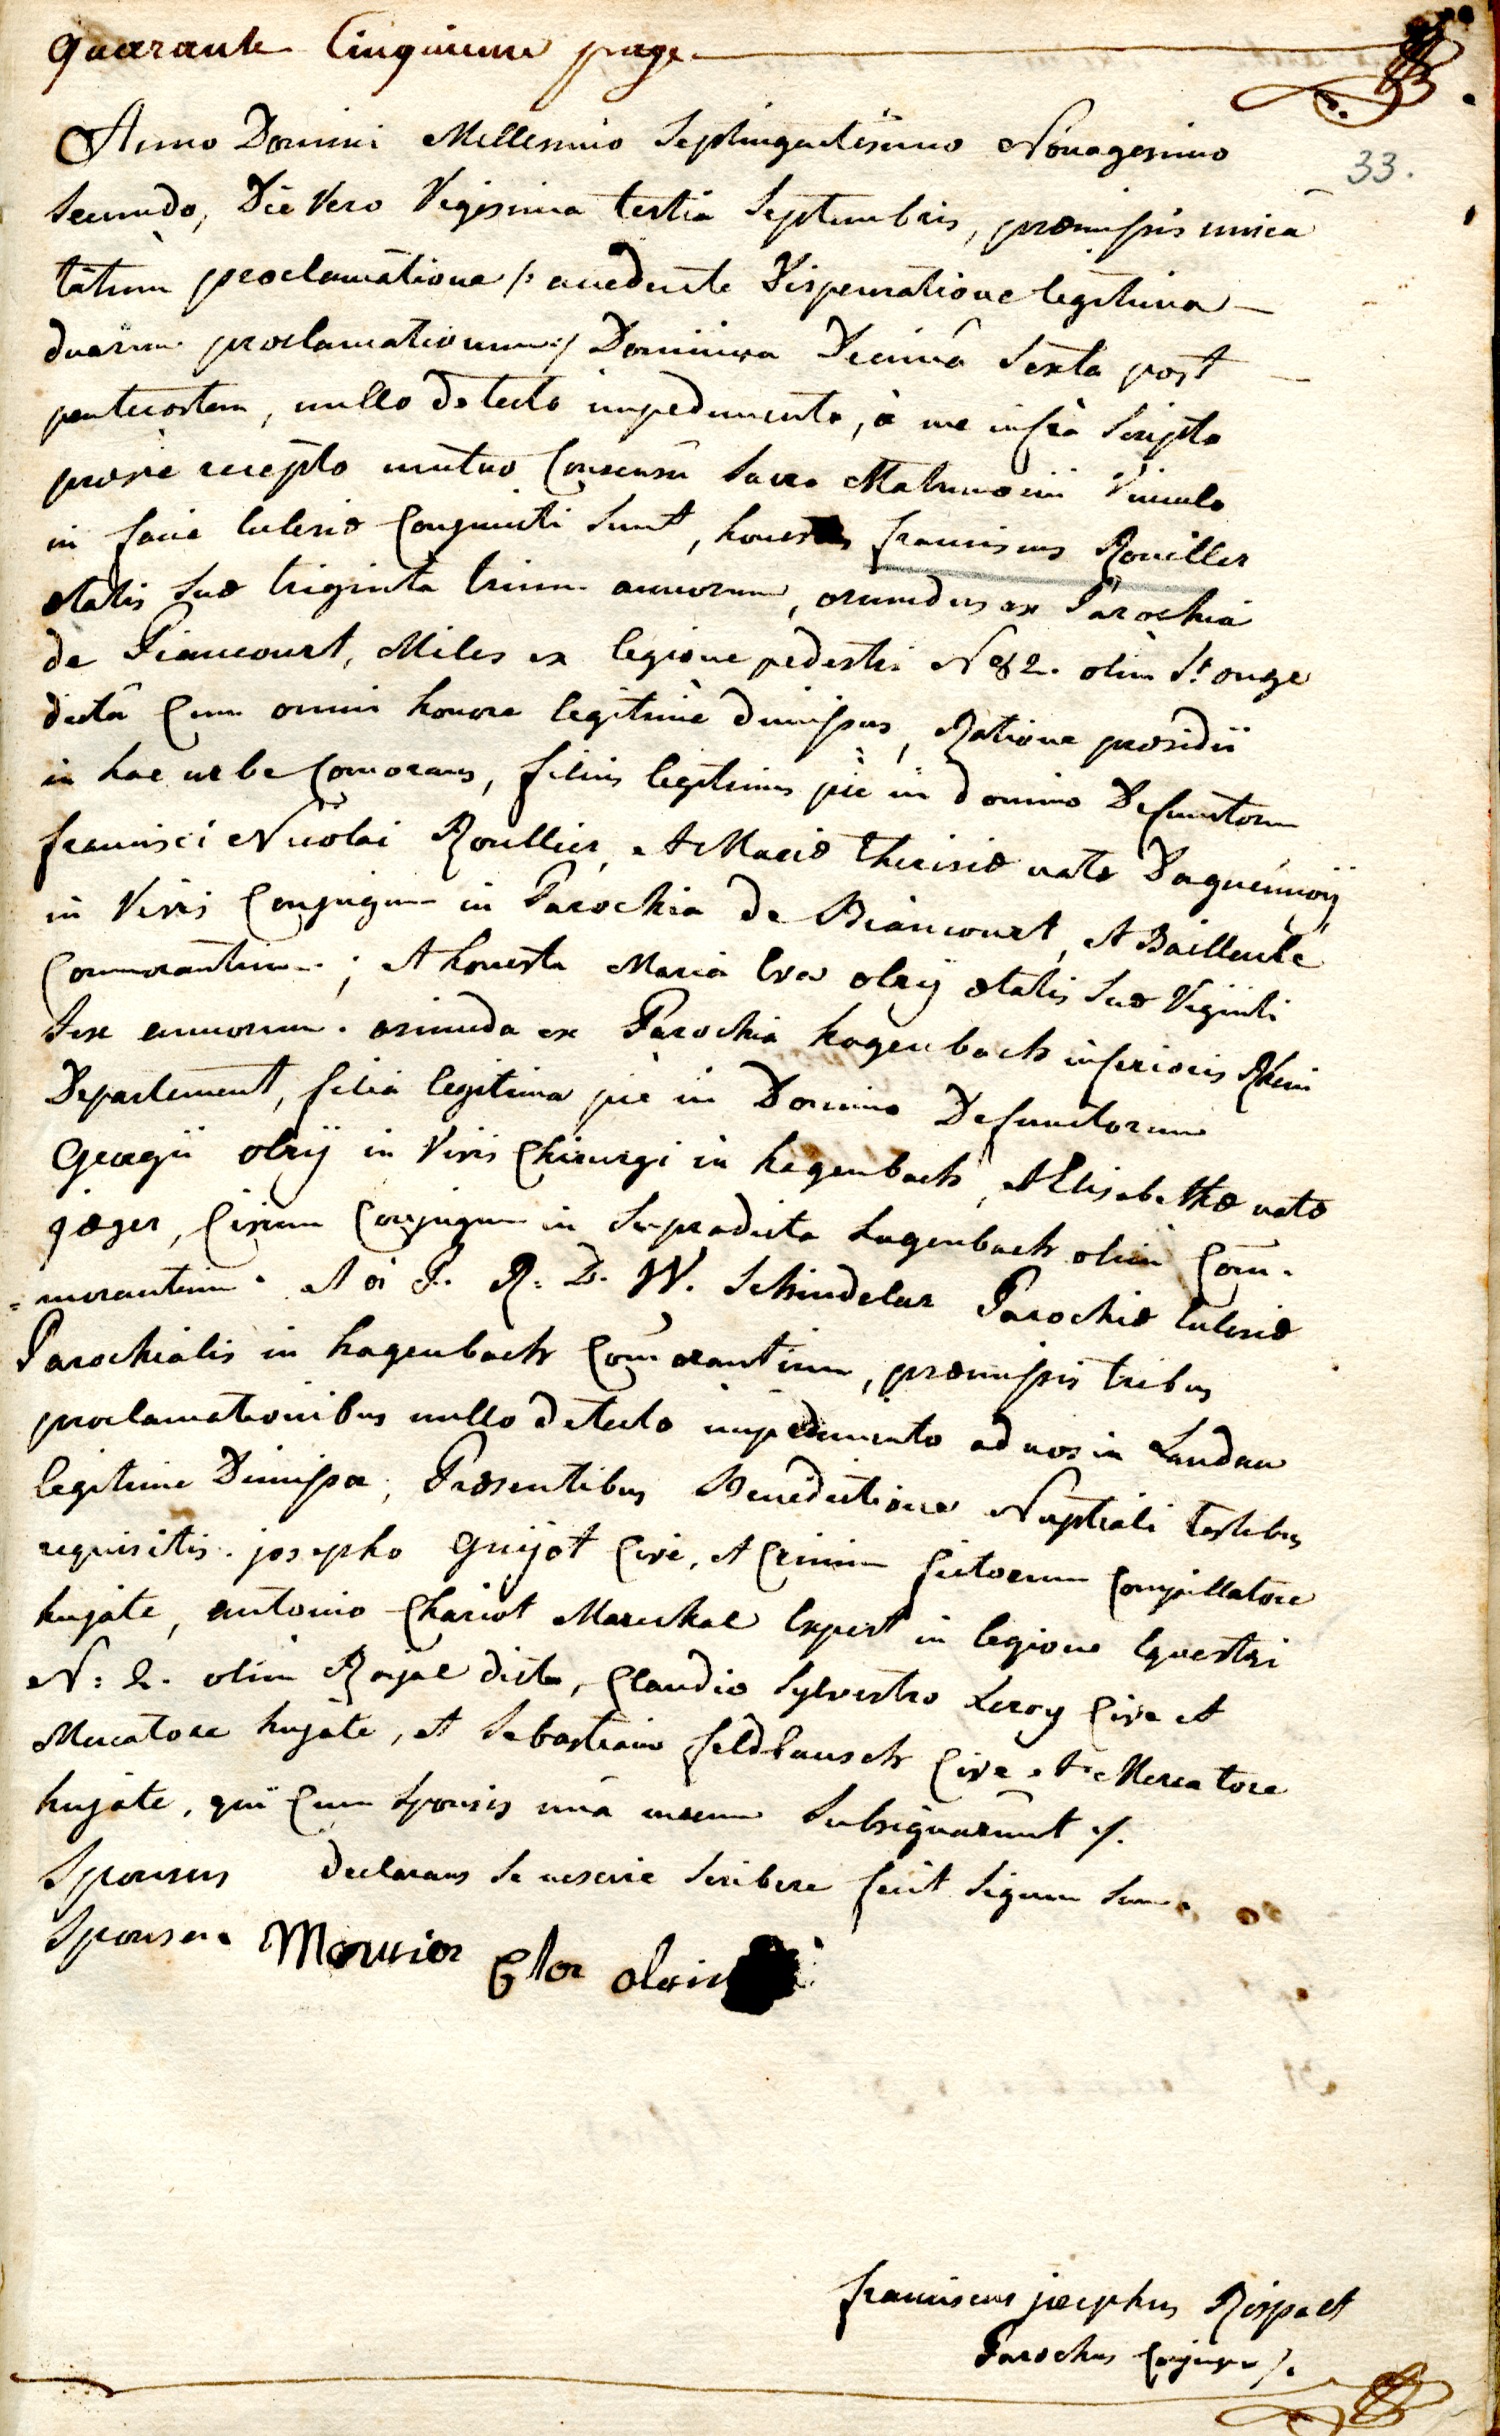 Quarante Cinquieme page
33.
Anno Domini Millesimo Septingentesimo Nonagesimo
Secundo, Die Vero Vigesima tertia Septembris, præmissis unicâ
tātum proclamatione /: accedente Dispensatione legitima
duarum proclamationum :/ Dominica Decimâ Sexta post
pentecostem, nullo detecto impedimento, à me infrà Scripto
parocho recepto mutuo Consensu Sacro Matrimonii Vinculo
in facie Eclesiæ Conjuncti Sunt, honestus franciscus Rouiller
ætatis Suæ triginta trium annorum, oriundus ex Parochiâ
de Piancourt, Miles ex legione pedestri N 82. olim St onge
dictâ Cum omni honore legitimè dimissus, Ratione præsidii
in hac urbe Comorans, filius legitimus piè in domino Defunctorum
francisci Nicolai Roullier, et Mariæ theresiæ natæ
in Vivis Conjugum in Parochia de Biancourt, et Bailleulle
Commorantium; et honesta Maria Eva olrÿ ætatis Suæ Viginti
Sex annorum. oriunda ex Parochia hagenbach inferioris Rheni
Departement, filia legitima piè in Domino Defunctorum
Georgii olrÿ in Vivis Chirurgi in hagenbach, et Elisabethæ natæ
jæger, Civium Conjugum in Supradicta hagenbach olim Com̄=
=morantium. et à P. R. D. W. Schindelar Parocho Eclesiæ
Parochialis in hagenbach Com̄orantium, præmissis tribus
proclamationibus nullo detecto impedimento ad nos in Landau
legitime Dimissa, Præsentibus Benedictione Nuptiali testibus
requisitis. josepho Guijot Cive, et Compillatore
hujate, antonio Chariot Mareschal Expert in legione Equestri
N: 2. olim Royal dicta, Claudio Sylvestro Leroy Cive et
Mercatore hujate, et Sebastiano feldbausch Cive et Mercatore
hujate, qui Cum Sponsis unâ mecum Subsignarunt ./.
Sponsus declarans Se nescire Scribere fecit Signum Suum.
Sponsa.
franciscus josephus Rispact
Parochus ./.